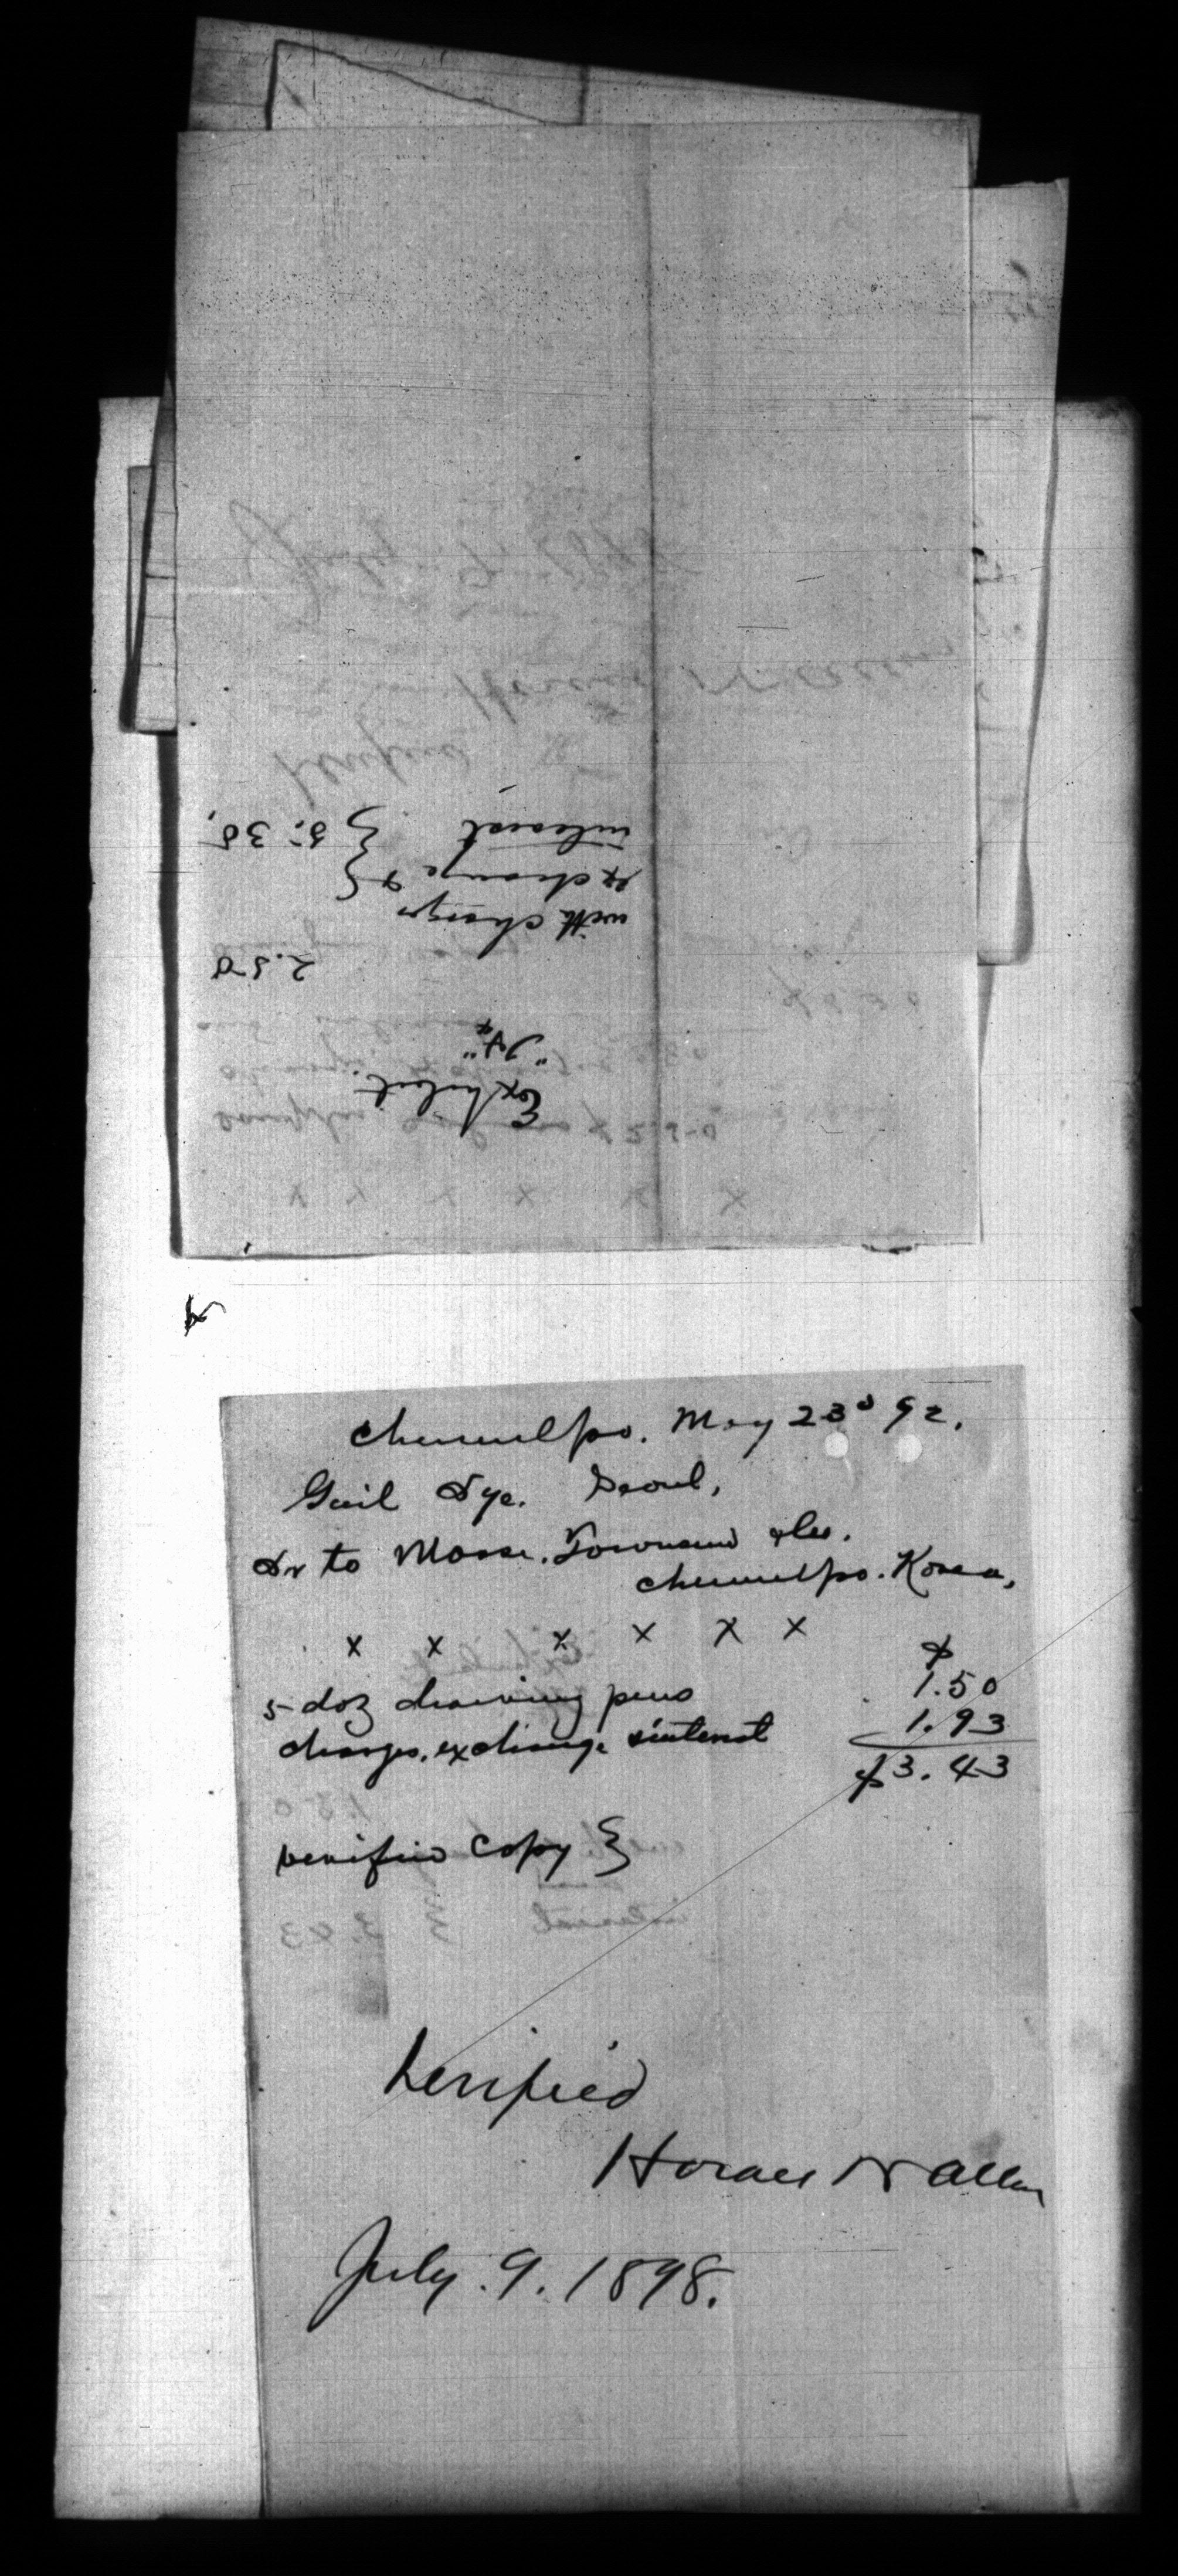 Exhibit
2.50
with charges
exchange &
interest } 5.35,
Chemulpo. May 23d 92.
Gen'l Dye. Seoul,
Dr to Morse. Townsend & Co.
Chemulpo. Korea,
x x x x x x
$
5 doz drawing pens 1.50
charges, exchange & interest 1.93
$3.43
verified copy }
Verified
Horace N Allen
July. 9. 1898.